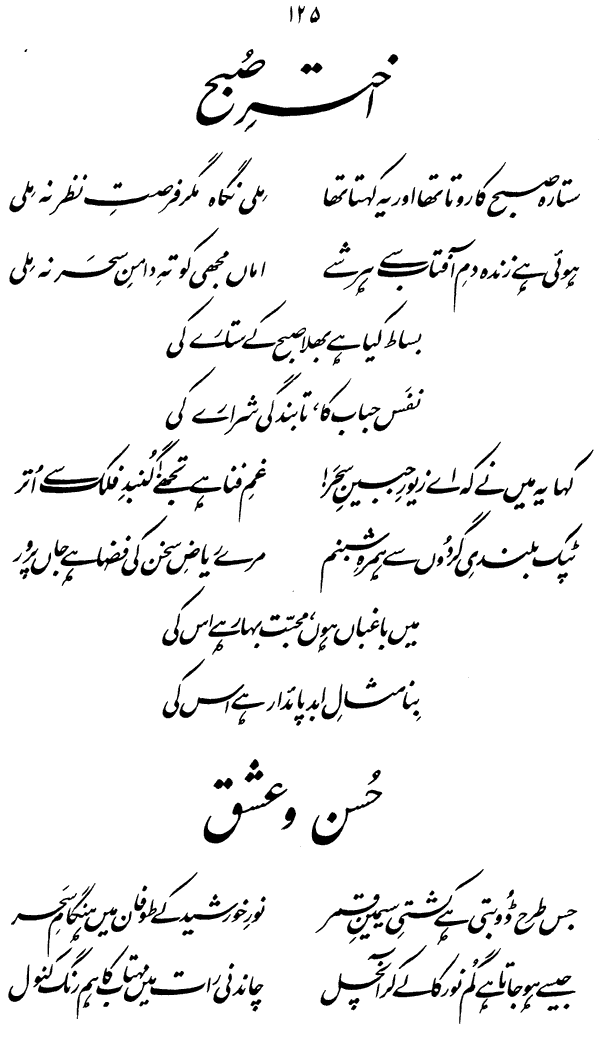 ۱۲۵
اخترِ صُبح
ستارہ صبح کا روتا تھا اور یہ کہتا تھا مِلی نگاہ مگر فرصتِ نظر نہ مِلی
ہوئی ہے زندہ دمِ آفتاب سے ہر شے اماں مجھی کو تہِ دامنِ سحَر نہ مِلی
بساط کیا ہے بھلا صبح کے ستارے کی
نفَس حباب کا، تابندگی شرارے کی
کہا یہ میں نے کہ اے زیورِ جبینِ سحَر! غمِ فنا ہے تجھے! گُنبدِ فلک سے اُتر
ٹپک بلندیِ گردُوں سے ہمرہِ شبنم مرے ریاضِ سخن کی فضا ہے جاں پرور
میں باغباں ہوں، محبّت بہار ہے اس کی
بِنا مثالِ ابد پائدار ہے اس کی
حُسن و عشق
جس طرح ڈُوبتی ہے کشتیِ سیمینِ قمر نورِ خورشید کے طوفان میں ہنگامِ سحَر
جیسے ہو جاتا ہے گُم نور کا لے کر آنچل چاندنی رات میں مہتاب کا ہم رنگ کنول